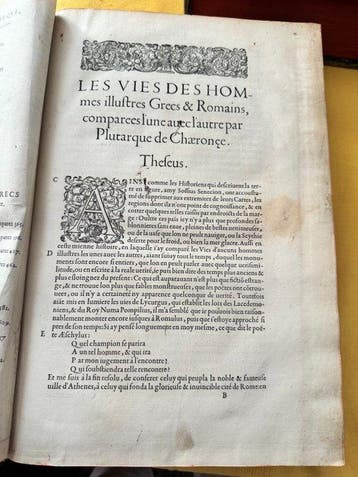 LES VIES DES HOM-
mes illustres Grecs & Romains,
comparees l'une auec l'autre par
Plutarque de Chæronçe.
Theseus.
C
AINSI comme les Historiens qui descriuent la ter-
re en figure, amy Sossius Senecion, ont accoustu-
mé de supprimer aux extremitez de leurs Cartes, les
regions dont ils n'ont point de cognoissance, & en
cottent quelques telles raisons par endroits de la marge
: Outre ces pays icy n'a plus que profondes
sablonnieres sans eau, pleines de bestes venimeuses,
ou de la vase que lon ne peut nauiger, ou la Scythie
deserte pour le froid, ou bien la mer glacée. Aussi en
ceste mienne histoire, en laquelle i'ay comparé les Vies d'aucuns hommes
D illustres les vnes auec les autres, aiant suiuy tout le temps, duquel les monu-
mens sont encore si entiers, que lon en peut parler auec quelque verisimi-
litude, ou en escrire à la reale verité, ie puis bien dire des temps plus anciens &
plus esloignez du present. Ce qui est auparauant n'est plus que fictiõ estran-
ge, & ne trouue lon plus que fables monstrueuses, que les Poëtes ont con-
trouuees, où il n'y a certaineté ny apparence quelconque de verité. Toutefois
aiant mis en lumiere les vies de Lycurgus, qui establit les loix des Lacedemo-
niens, & du Roy Numa Pompilius, il m'a semblé que ie pouuois bien raison-
nablement monter encore iusques à Romulus, puis que i'estoye approché si
pres de son temps: Si ay pensé longuement en moy mesme, ce que dit le poë-
E te Æschylus:
Quel champion se parira
A vn tel homme, & qui ira
Par mon iugement à l'encontre?
Qui soustiendra telle rencontre?
Et me suis à la fin resolu, de conferer celuy qui peupla la noble & fameuse
ville d'Athenes, à celuy qui fonda la glorieuse & inuincible cité de Rome: en
B